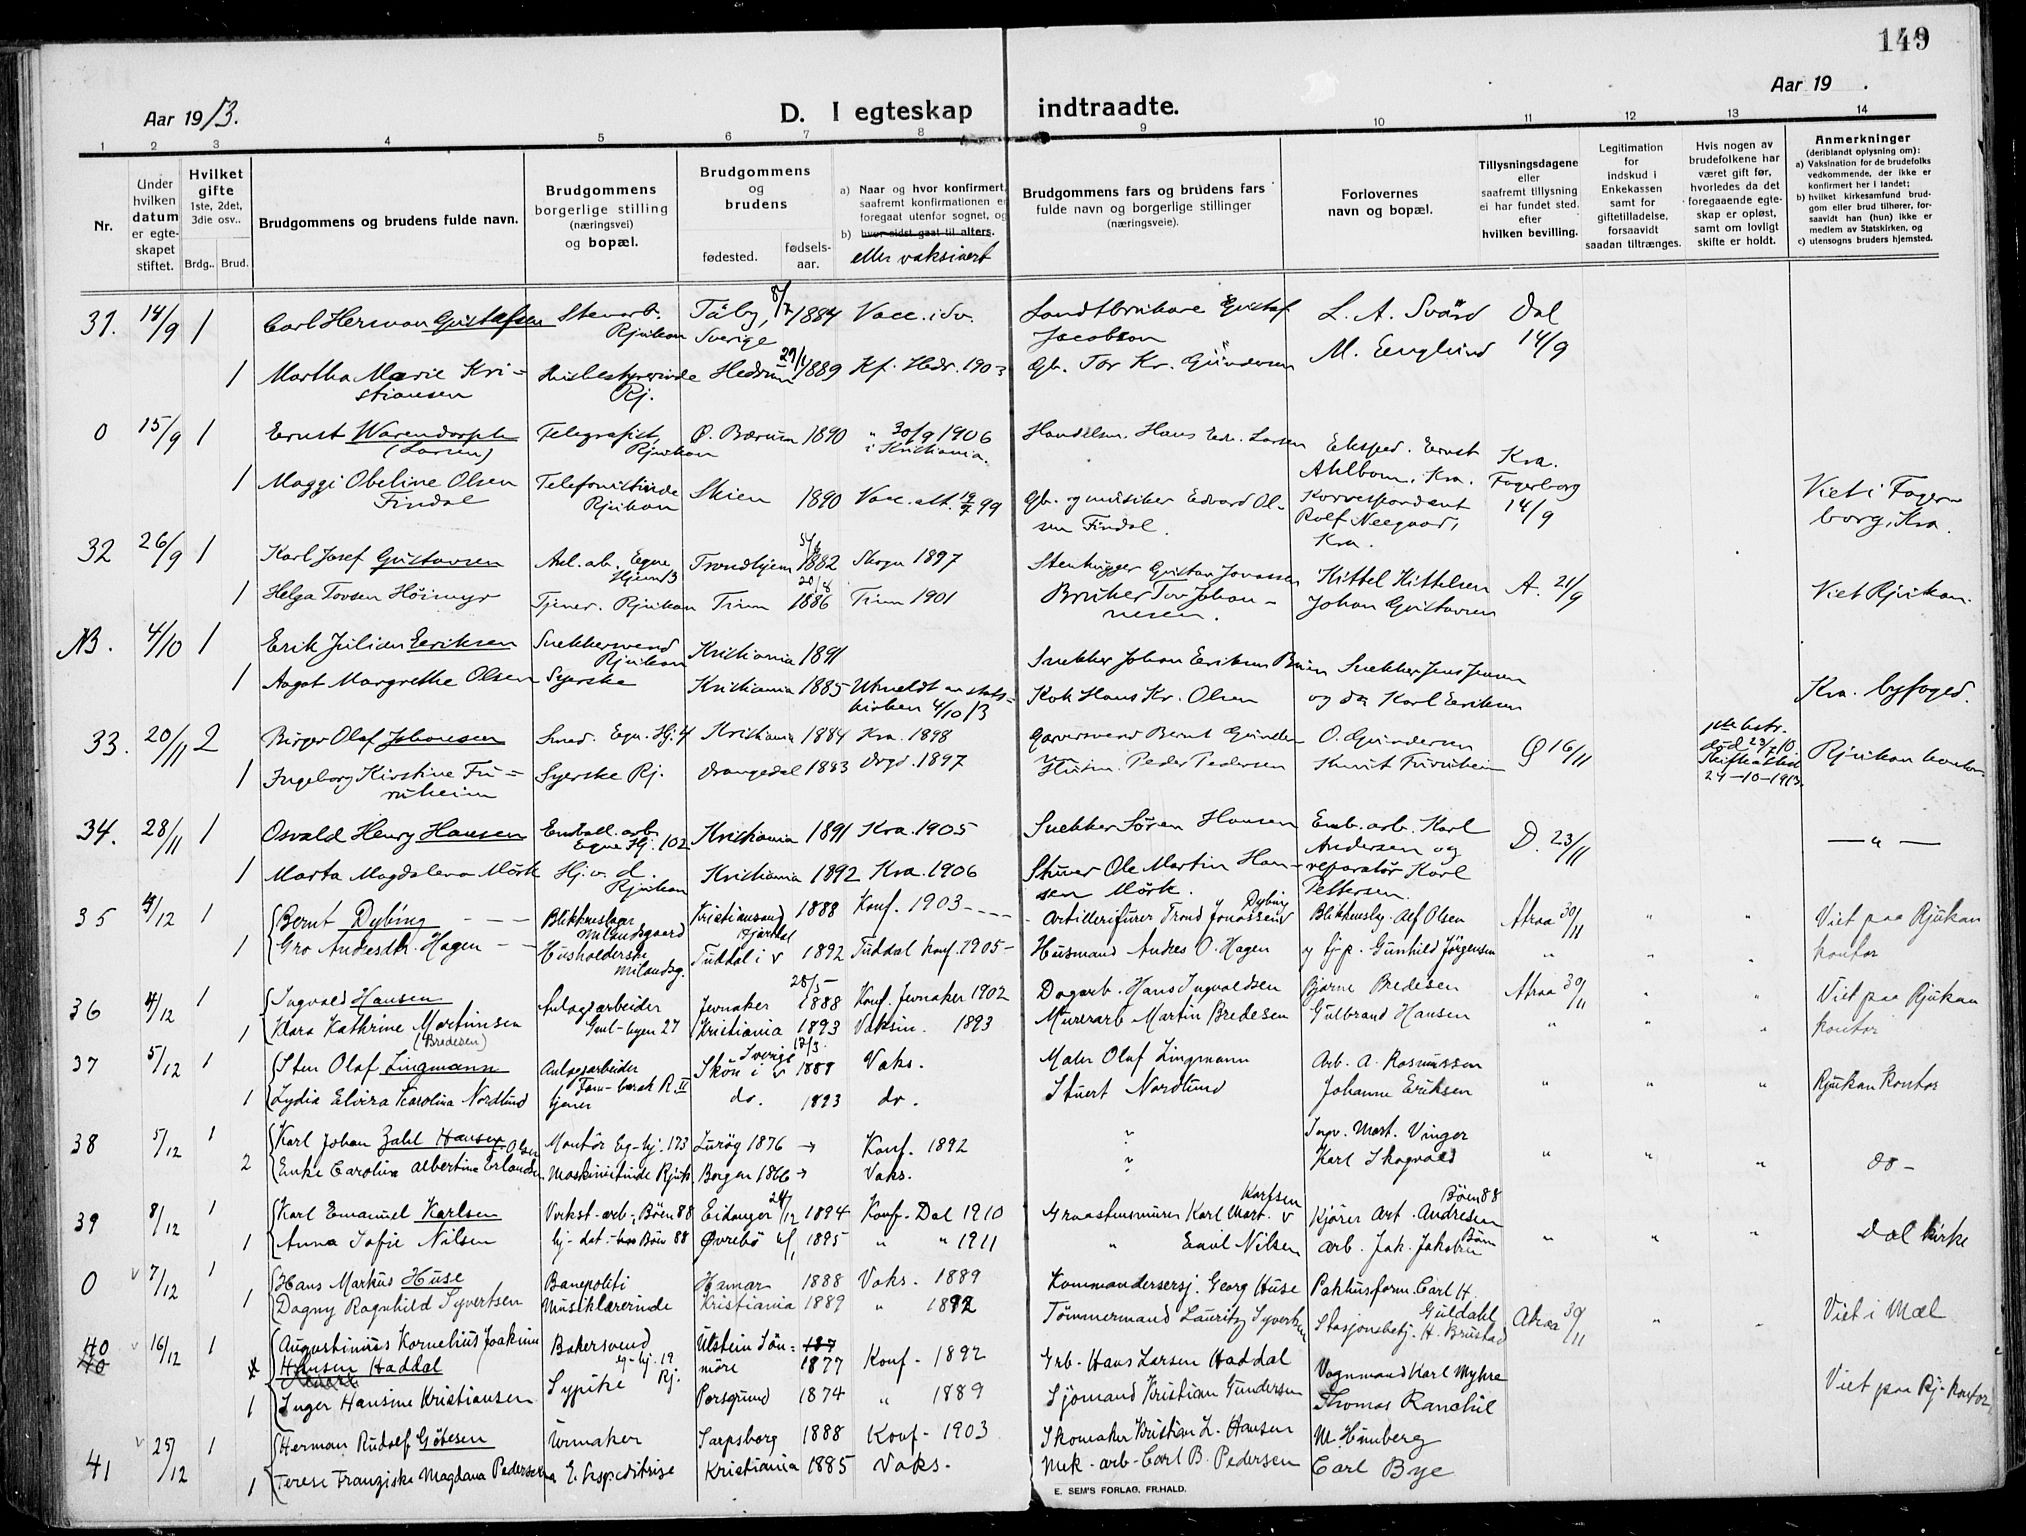 149
Aar 1913.
D. I egteskap indtraadte.
Aar 19 .
1 2 3 4 5 6 7 8 9 10 11 12 13 14
Nr.
Under hvilken datum er egteskapet stiftet.
Hvilket gifte 1ste, 2det, 3die osv..
Brdg.. Brud.
Brudgommens og brudens fulde navn.
Brudgommens borgerlige stilling (næringsvei) og bopæl.
Brudgommens og brudens
fødested. fødsels-aar.
a) Naar og hvor konfirmert, saafremt konfirmationen er foregaat utenfor sognet, og
b) hvor sidst gaat til alters.
eller vaksinert
Brudgommens fars og brudens fars fulde navn og borgerlige stillinger (næringsveie).
Forlovernes navn og bopæl.
Tillysningsdagene eller saafremt tillysning ei har fundet sted. efter hvilken bevilling.
Legitimation for indskud i Enkekassen samt for giftetilladelse, forsaavidt saadan tiltrænges.
Hvis nogen av brudefolkene har været gift før, hvorledes da det foregaaende egteskap er opløst, samt om lovligt skifte er holdt.
Anmerkninger (deriblandt oplysning om):
a) Vaksination for de brudefolks vedkommende, der ikke er konfirmert her i landet;
b) hvilket kirkesamfund brudgom eller brud tilhører, forsaavidt han (hun) ikke er medlem av Statskirken, og
c) utensogns bruders hjemsted.
31. 14/9 1 Carl Herman Gustafsen Stenarb. Rjukan Täby, Sverige 8/7 1884 Vacc. i Sv. Landtbrukare Gustaf Jacobson L. A. Svärd Dal 14/9
1 Martha Marie Kristiansen Husbestyrerinde Rj. Hedrum 29/1 1889 Kf. Hedr. 1903 Gb. Tor Kr. Gundersen M. Englund
0 15/9 1 Ernst Warendorph (Larsen) Telegrafist, Rjukan Ø. Bærum 1890 " 30/9 1906 i Kristiania. Handelsm. Hans Edv. Larsen Eksped. Ernst Ahlbom, Kra. Kra. Fagerborg 14/9
1 Maggi Obeline Olsen Findal Telefonistinde Rjukan Skien 1890 Vacc. att. 19/7 99 Gb. og musiker Edvard Olsen Findal. Korrespondent Rolf Neegaard, Kra. Viet i Fagerborg, Kra.
32 26/9 1 Karl Josef Gustavsen Anl. ab. Egne Hjem Trondhjem 1882 Skogn 1897 Stenhugger Gustav Jonassen Kittel Kittelsen A. 21/9
1 Helga Torsen Höimyr Tjener. Rjukan Tinn 20/8 1886 Tinn 1901 Bruker Tor Johannesen. Johan Gustavsen Viet Rjukan.
NB. 4/10 1 Erik Julian Eriksen Snekkersvend Rjukan Kristiania 1891 Snekker Johan Eriksen Snekker Jens Jensen
1 Aagot Margrethe Olsen Syerske Kristiania 1885 Utmeldt av statskirken 4/10 13 Kok Hans Kr. Olsen og do Karl Eriksen Kra. byfoged.
33. 20/11 2 Birger Olaf Johansen Smed. Egn. Hj. 4 Kristiania 1884 Kra. 1898 Garversvend Bernt O. Gundersen 16/11 1ste hstr. død 23/7 10. 24-10-1913. Rjukan kontor
1 Ingeborg Kirstine Furuheim Syerske Rj. Drangedal 1883 Drgd. 1897 Husm. Peder Pedersen Knut Furuheim
34. 28/11 1 Osvald Henry Hansen Emball. arb. Egne Hj. 102 Kristiania 1891 Kra. 1905 Snekker Søren Hansen Emb. arb. Karl Andersen og D. 23/11 — " —
1 Marta Magdalena Mörk Hj. v. d. Rjukan Kristiania 1892 Kra. 1906 Stuer Ole Martin Hansen Mörk. reparatør Karl Pettersen.
35 4/12 1 Bernt Dybing Blikkenslager Milandsgaard Kristiansand 1888 Konf. 1903 Artillerifurer Trond Jonassen Dybing Blikkensl. Alf Olsen Atraa 30/11 " " Viet paa Rjukan kontor
1 Gro Andresdtr. Hagen Husholderske Milandsg. Tuddal i Hjartdal 1892 Tuddal Konf. 1905 Husmand Andres O. Hagen Gunhild Jørgensen " " "
36 4/12 1 Ingvald Hansen Anlægsarbeider Gul-byen 27 Jevnaker 28/5 1888 Konf. Jevnaker 1902 Dagarb. Hans Ingvaldsen Bjarne Bredesen Atraa 30/11 " " Viet paa Rjukan kontor
1 Klara Kathrine Martinsen (Bredesen) Kristiania 1893 Vaksin. 1893 Murerarb Martin Bredesen Gulbrand Hansen " " "
37 5/12 1 Sten Olaf Lingmann Anlægsarbeider Fam-barak R. II Skön i Sverige 17/3 1888 Vaks. Maler Olaf Lingmann Arb. A. Rasmussen
1 Lydia Elvira Karolina Nordlund tjener do. 1893 do. Stuert Nordlund Johanne Eriksen " " " Rjukan Kontor
38 5/12 1 Karl Johan Zahl Hansen Montör Eg-hj. 173 Lurøy 1876 → Konf. 1892 " Ingv. Mart. Vinger
2 Enke Carolina Albertina Erlandsen Olsen Maskinistinde Rjuk. Borgen 1866 → Vaks. " Karl Skogvold " " " do -
39 8/12 1 Karl Emanuel Karlsen Verkst-arb-, Böen 88 Eidanger 24/12 1894 Konf. Dal 1910 Graastensmurer Karl Mart. Karlsen Kjører Art. Andresen Böen 88
1 Anna Sofie Nilsen hj-dat. - hos Böen 88 Øvrebö 1895 " " 1911 " Emil Nilsen arb. Jak. Jakobsen Böen " " " Dal kirke
0 7/12 1 Hans Markus Huse Banepoliti Hamar 1888 Vaks. 1889 Kommandersersj. Georg Huse Pakhusform. Carl H. Guldahl
1 Dagny Ragnhild Syvertsen Musiklærerinde Kristiania 1889 " 1892 Tømmermand Lauritz Syvertsen Stasjonsbetj. H. Brustad Atraa 30/11 " " Viet i Mæl
40 16/12 1 Augustinius Kornelius Joakim Hansen Haddal Bakersvend eg-hj. 19 Rj. Ulstein Sönmöre 1877 Konf. 1892 Grb. Hans Larsen Haddal Vognmand Karl Myhre
1 Inger Hansine Kristiansen Sypike Porsgrund 1874 " 1889 Sjömand Kristian Gundersen Thomas Ranchil Viet paa Rj-kontor
41 25/12 1 Herman Rudolf Götesen Urmaker Sarpsborg 1888 Konf. 1903 Skomaker Kristian L. Hansen M. Humberg
1 Terese Franziske Magdana Pedersen Ekspeditrise Kristiania 1885 Vaks. Mek-arb-Carl B. Pedersen Carl Bye
E. SEM'S FORLAG. FR.HALD.